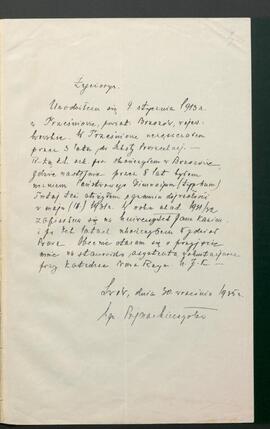 Życiorys.
Urodziłem się 4 stycznia 1913 r.
w Trześniowie, powiat Brzozów, wojew.
lwowskie. W Trześniowie uczęszczałem
przez 3 lata do Szkoły Powszechnej —
szk. pow. ukończyłem w Brzozowie,
gdzie następnie przez 8 lat byłem
uczniem Państwowego Gimnazjum
Tutaj też złożyłem egzamin dojrzałości
w maju 1931 r. W roku akad. 1931/32
zapisałem się na uniwersytet Jana Kazim.
i po 4ch latach ukończyłem wydział
Prawa. Obecnie staram się o przyjęcie
mnie na stanowisko asystenta
przy Katedrze Prawa Rzym. U.J.K. —
Lwów, dnia 30 września 1935 r.
Mgr.